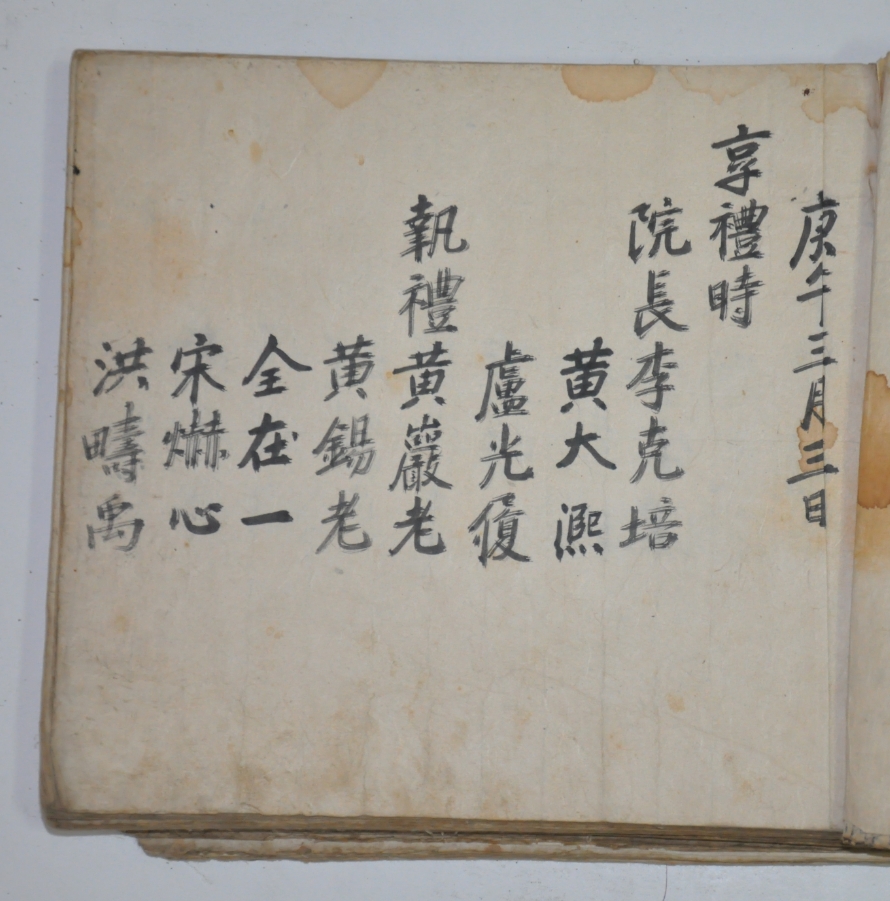 庚午三月三日
享禮時
院長李克培
黄大淵
盧光復
執禮黄巖老
黄錫老
全在一
宋爀心
洪疇禹